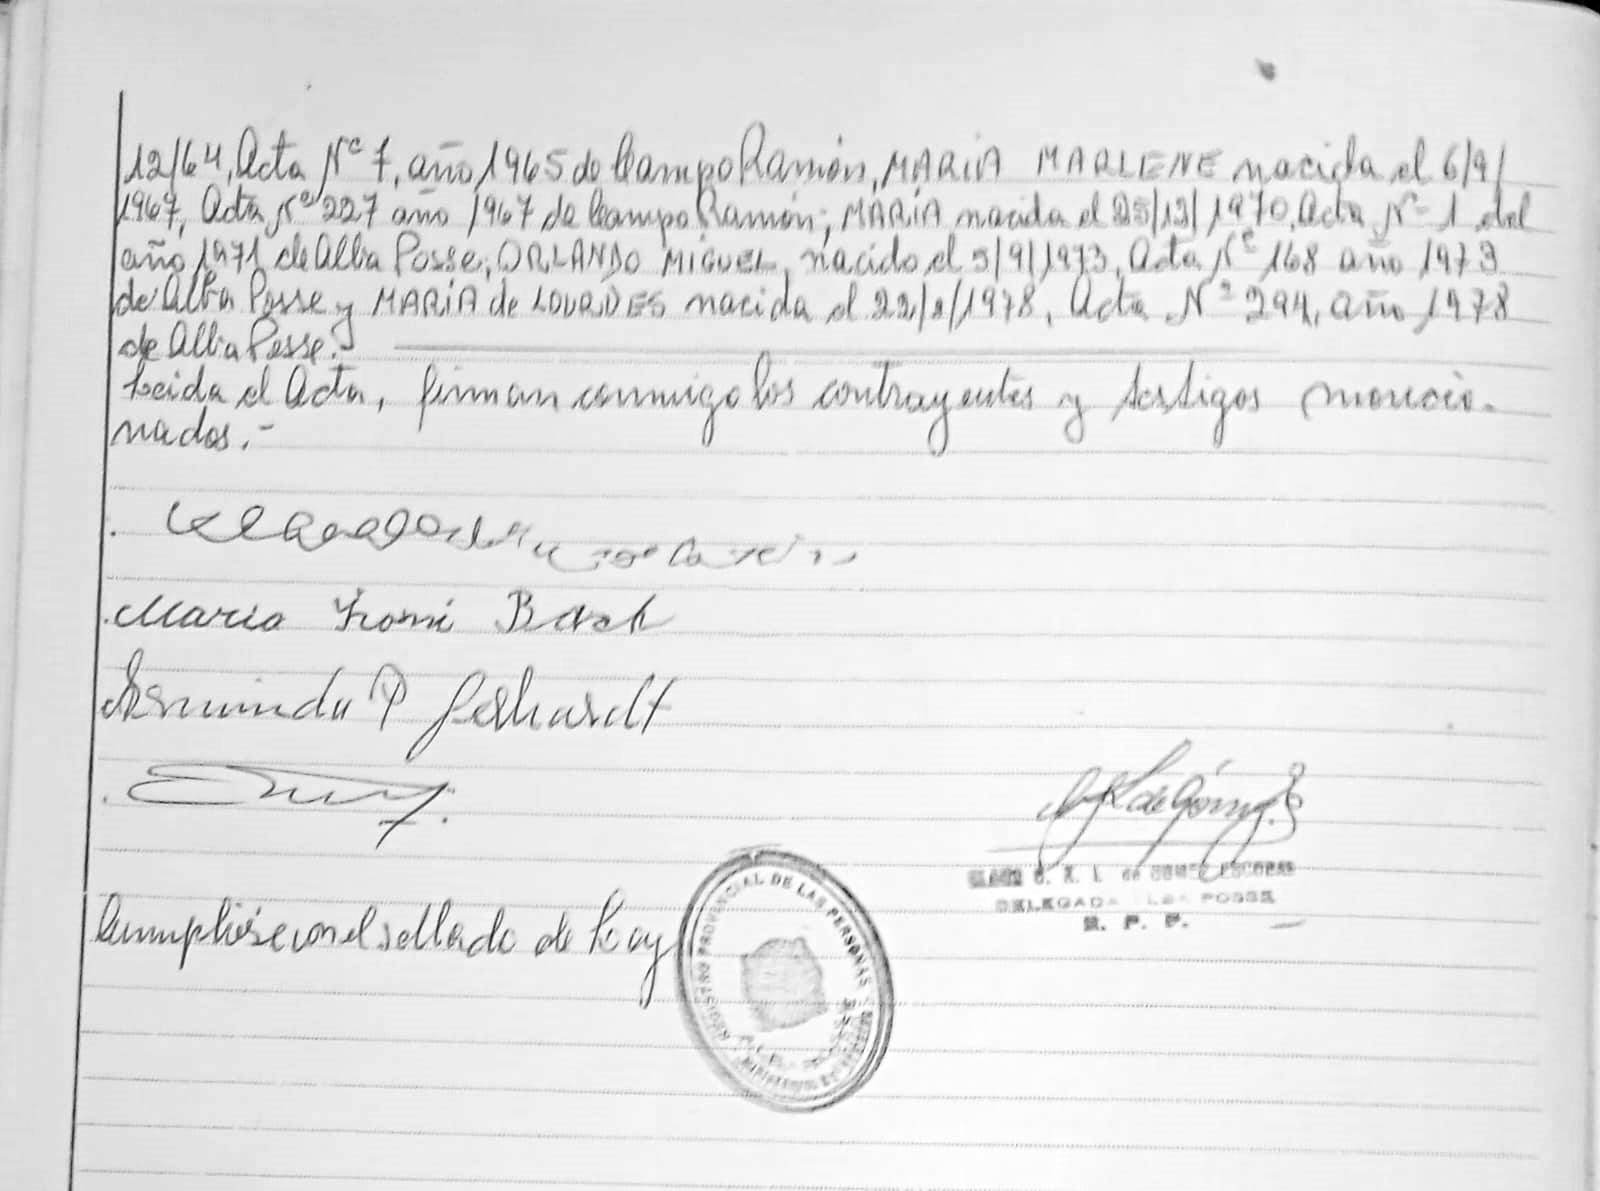 12/64, Acta Nº 7, año 1965 de Campo Ramón, MARIA MARLENE nacida el 6/9/
1967, Acta Nº 227 año 1967 de Campo Ramón; MARIA nacida el 25/12/1970, Acta Nº 1 del
año 1971 de Alba Posse; ORLANDO MIGUEL, nacido el 5/9/1973, Acta Nº 168 año 1973
de Alba Posse y MARIA de LOURDES nacida el 22/8/1978, Acta Nº 294, año 1978
de Alba Posse.
Leida el Acta, firman conmigo los contrayentes y testigos mencio-
nados.-
Maria Bach
Erminda P Gerhardt
de Góme
de GOMEZ ESCOBAR
DELEGADA POSSE
R. P. P.
Cumpliése con el sellado de Ley
REGISTRO PROVINCIAL DE LAS PERSONAS